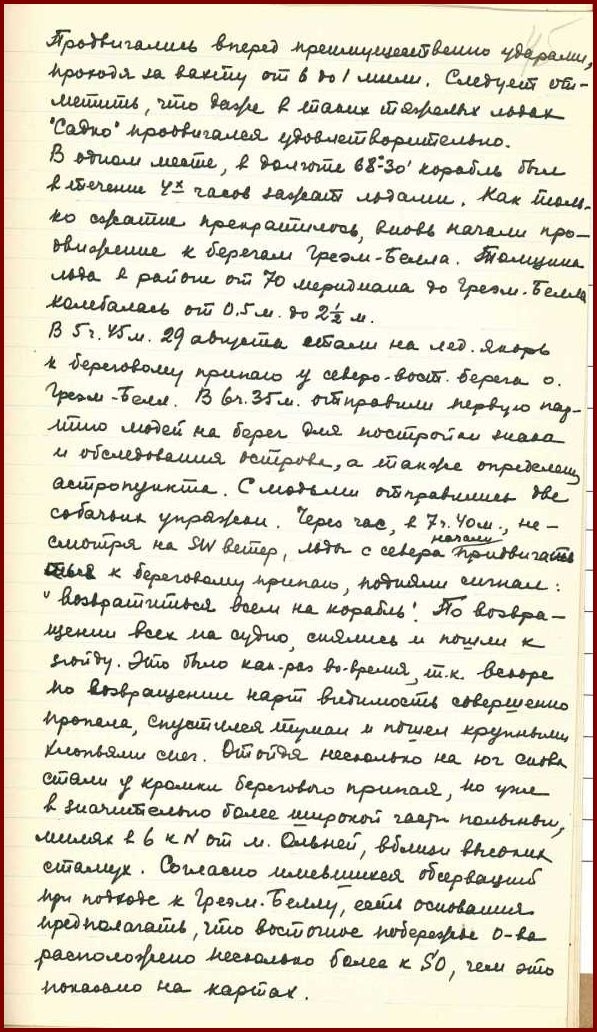 Продвигались вперед преимущественно ударами,
проходя за вахту от 6 до 1 мили. Следует от-
метить, что даже в таких тяжелых льдах
"Садко" продвигался удовлетворительно.
В одном месте, в долготе 68°-30' корабль был
в течение 4х часов зажат льдами. Как толь-
ко сжатие прекратилось, вновь начали про-
движение к берегам Греэм-Белла. Толщина
льда в районе от 70 меридиана до Греэм-Белла
колебалась от 0.5 м. до 2½ м.
В 5 г. 45 м. 29 августа стали на лед. якорь
к береговому припаю у северо-вост. берега о.
Греэм-Белл. В 6 г. 35 м. отправили первую пар-
тию людей на берег для постройки знака
и обследования острова, а также определения
астропункта. С людьми отправились две
собачьих упряжки. Через час, в 7 г. 40 м., не-
смотря на SW ветер, льды с севера начали придвигать
ться к береговому припаю, подняли сигнал:
"возвратиться всем на корабль". По возвра-
щении всех на судно, снялись и пошли к
зюйду. Это было как-раз во-время, т.к. вскоре
по возвращении нарт видимость совершенно
пропала, спустился туман и пошел крупными
хлопьями снег. Отойдя несколько на юг снова
стали у кромки берегового припая, но уже
в значительно более широкой части полыньи,
милях в 6 к N от м. Ольней, вблизи высоких
стамух. Согласно имевшихся обсерваций
при подходе к Греэм-Беллу, есть основания
предполагать, что восточное побережье о-ва
расположено несколько более к SO, чем это
показано на картах.